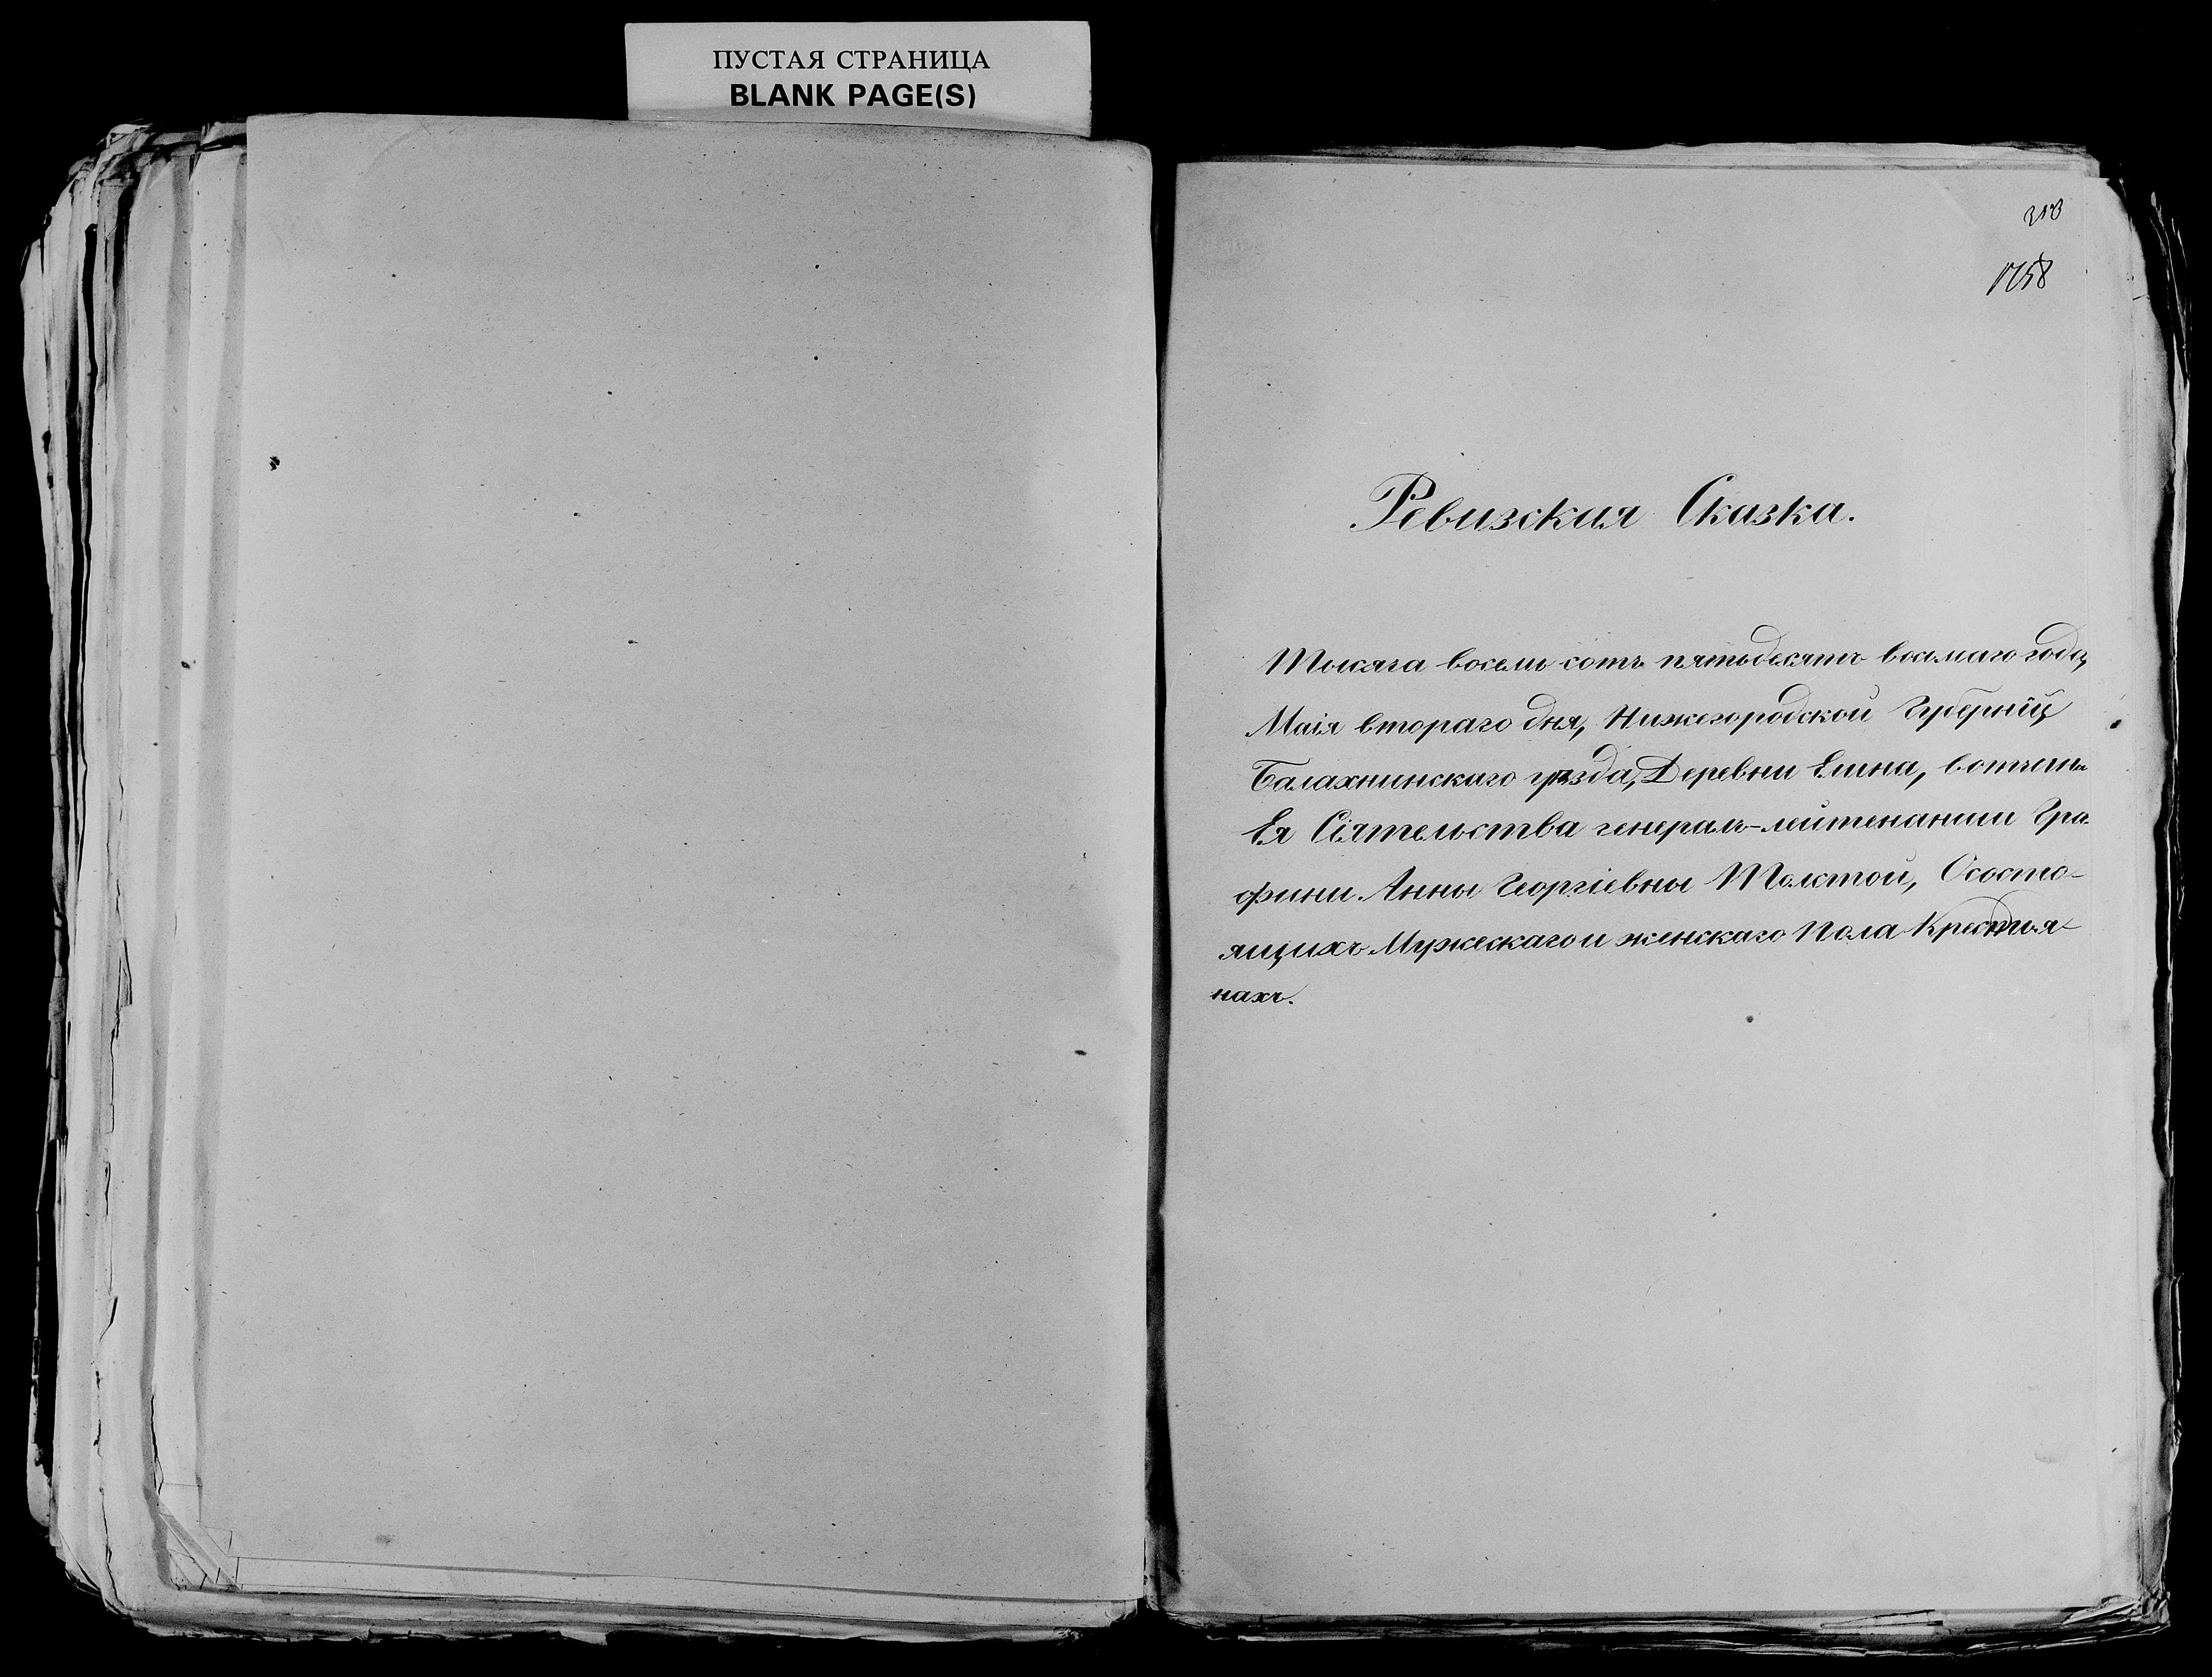 ПУСТАЯ СТРАНИЦА
BLANK PAGE(S)
1758
Ревизская Сказка.
Тысяча восемь сотъ пятьдесятъ восьмаго года,
Маія втораго дня, Нижегородской Губерніи
Балахнинскаго уѣзда, Деревни Елина, вотчины
Ея Сіятельства генералъ-лейтенанши Гра-
фини Анны Георгіевны Толстой, Осостo-
ящихъ Мужескаго и женскаго Пола Крестья-
нахъ.